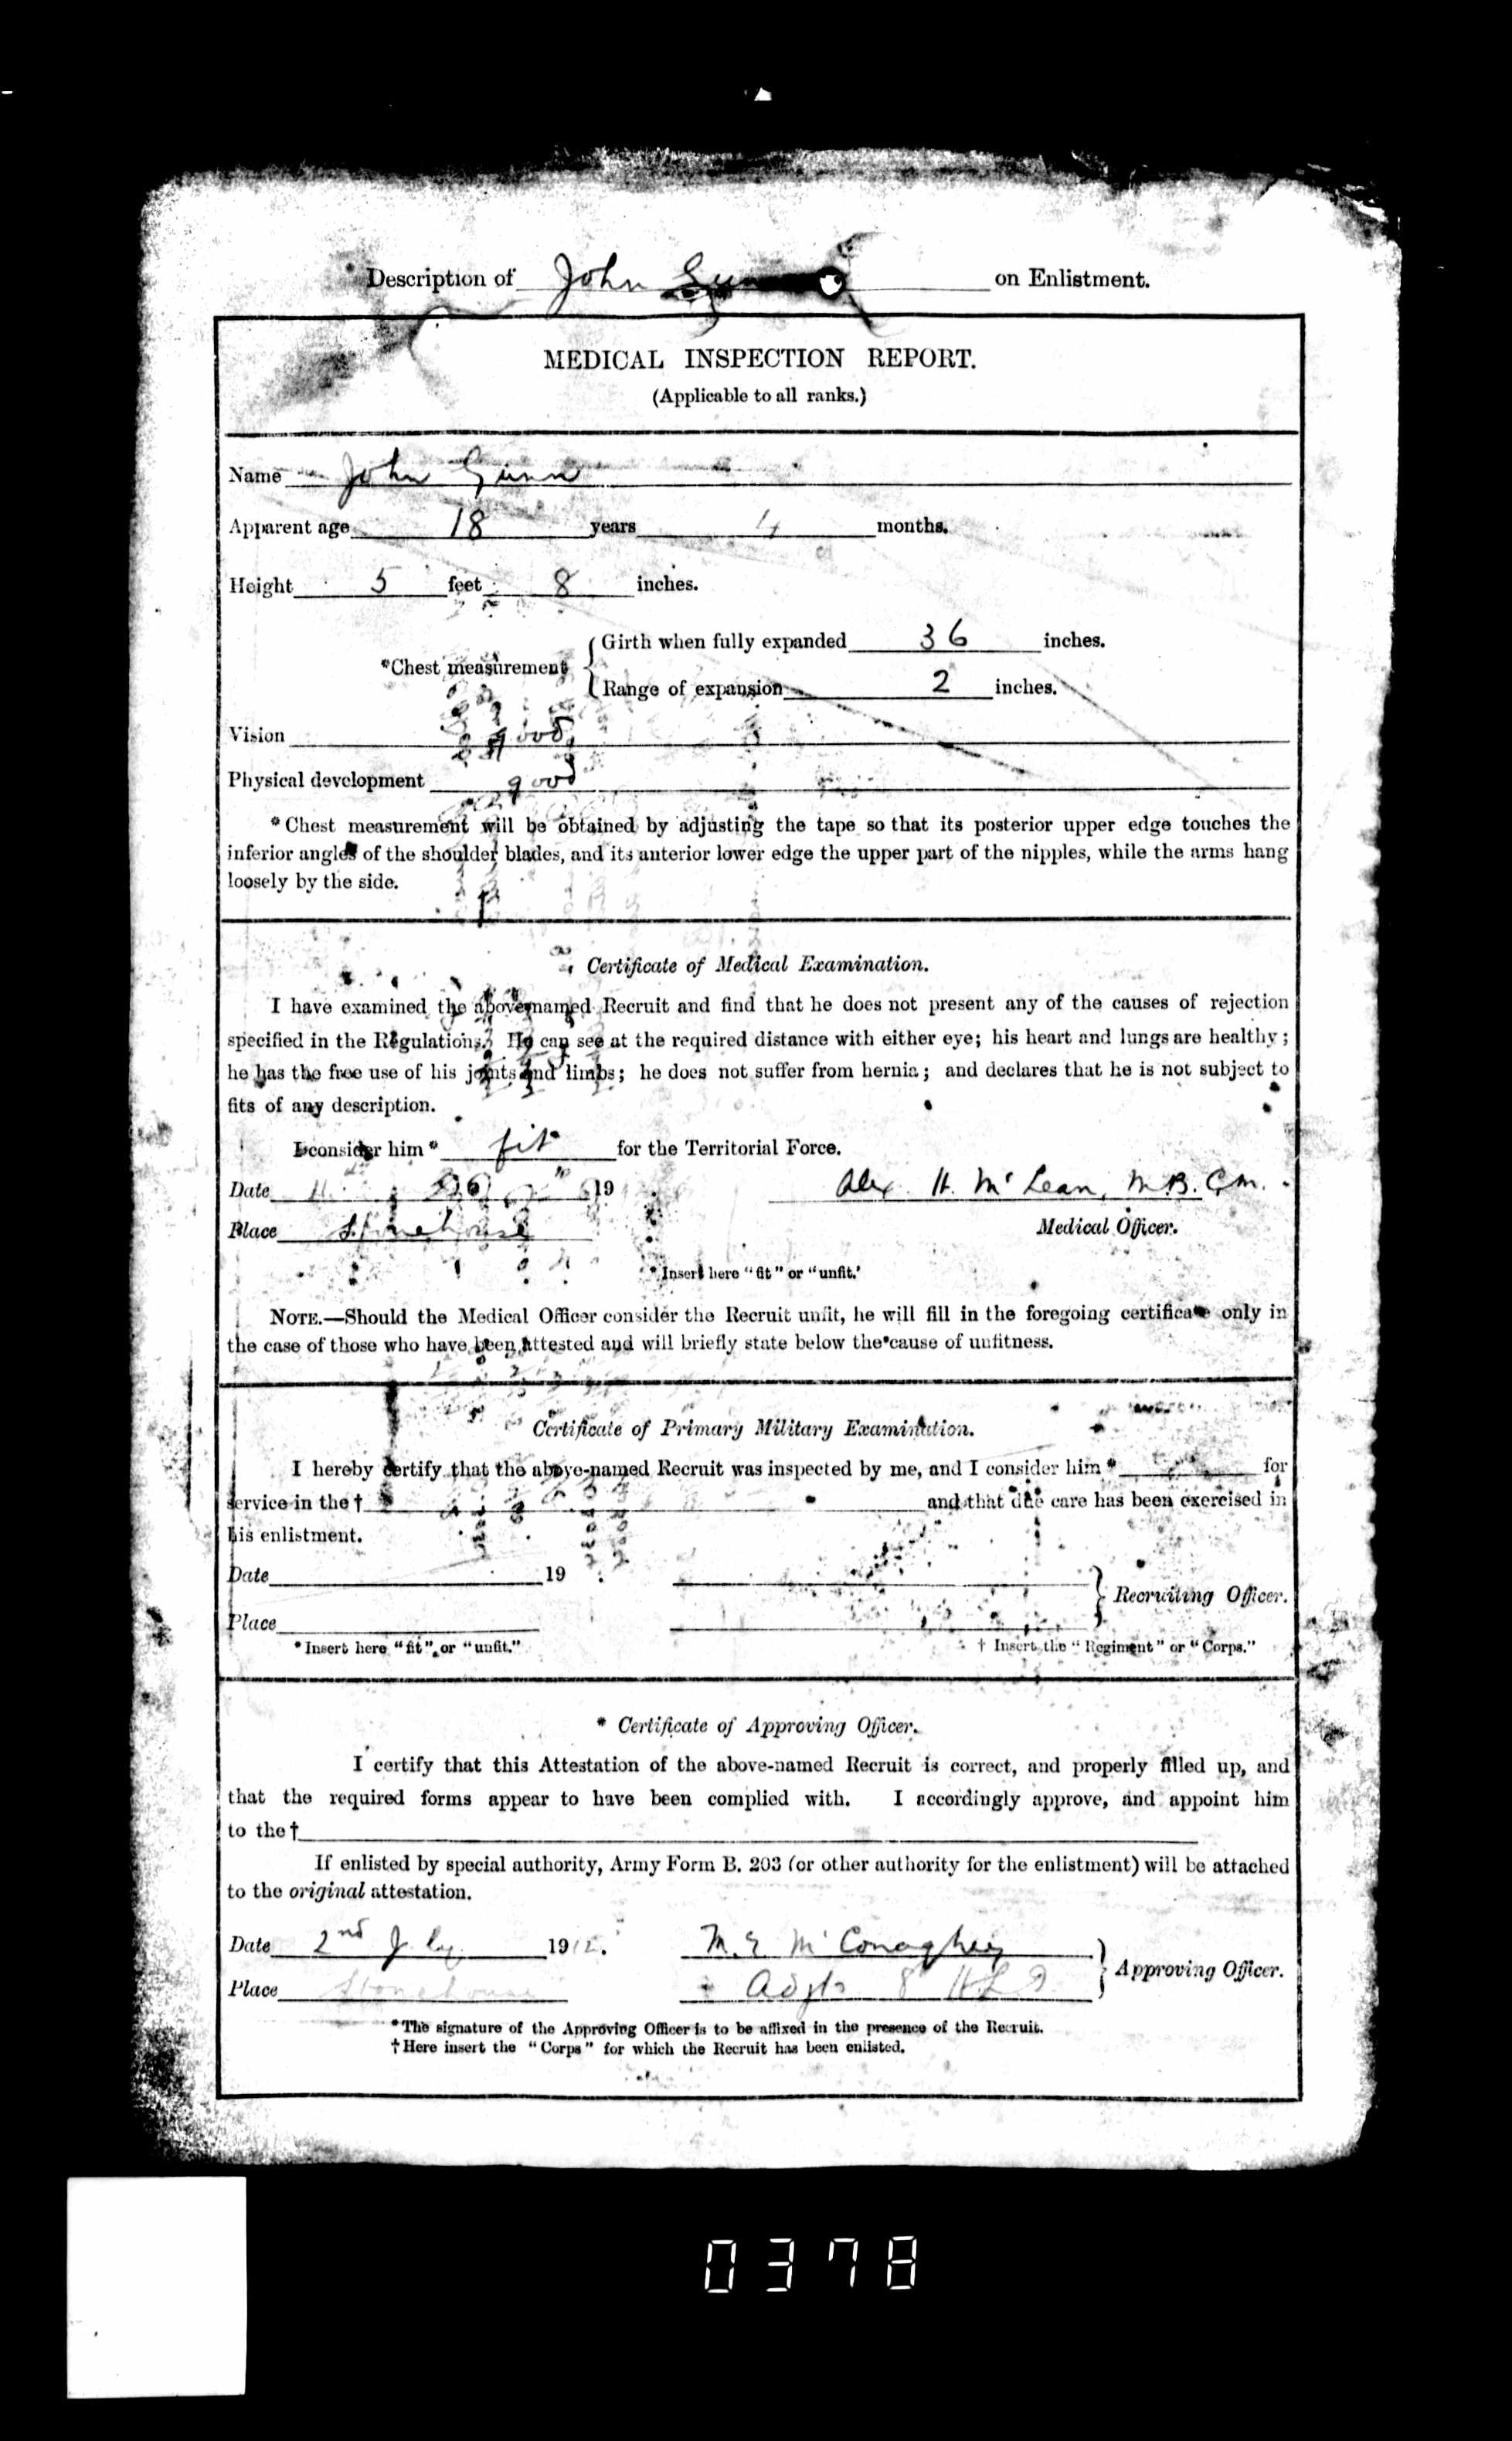 Description of John on Enlistment.
MEDICAL INSPECTION REPORT.
(Applicable to all ranks.)
Name John Gunn
Apparent age 18 years 4 months.
Height 5 feet 8 inches.
*Chest measurement { Girth when fully expanded 36 inches.
Range of expansion 2 inches.
Vision good
Physical development good
* Chest measurement will be obtained by adjusting the tape so that its posterior upper edge touches the
inferior angles of the shoulder blades, and its anterior lower edge the upper part of the nipples, while the arms hang
loosely by the side.
Certificate of Medical Examination.
I have examined the above-named Recruit and find that he does not present any of the causes of rejection
specified in the Regulations. He can see at the required distance with either eye; his heart and lungs are healthy;
he has the free use of his joints and limbs; he does not suffer from hernia; and declares that he is not subject to
fits of any description.
I consider him * fit for the Territorial Force.
Date 19 Alex. H. McLean, M.B. C.M.
Place Stonehouse Medical Officer.
* Insert here "fit" or "unfit."
NOTE.—Should the Medical Officer consider the Recruit unfit, he will fill in the foregoing certificate only in
the case of those who have been attested and will briefly state below the cause of unfitness.
Certificate of Primary Military Examination.
I hereby certify that the above-named Recruit was inspected by me, and I consider him * for
service in the † and that due care has been exercised in
his enlistment.
Date 19
} Recruiting Officer.
Place
* Insert here "fit" or "unfit." † Insert the "Regiment" or "Corps."
* Certificate of Approving Officer.
I certify that this Attestation of the above-named Recruit is correct, and properly filled up, and
that the required forms appear to have been complied with. I accordingly approve, and appoint him
to the †
If enlisted by special authority, Army Form B. 203 (or other authority for the enlistment) will be attached
to the original attestation.
Date 2nd July 1912. M. E. McConaghey
} Approving Officer.
Place Stonehouse Adjt 8 H L I
* The signature of the Approving Officer is to be affixed in the presence of the Recruit.
† Here insert the "Corps" for which the Recruit has been enlisted.
0378